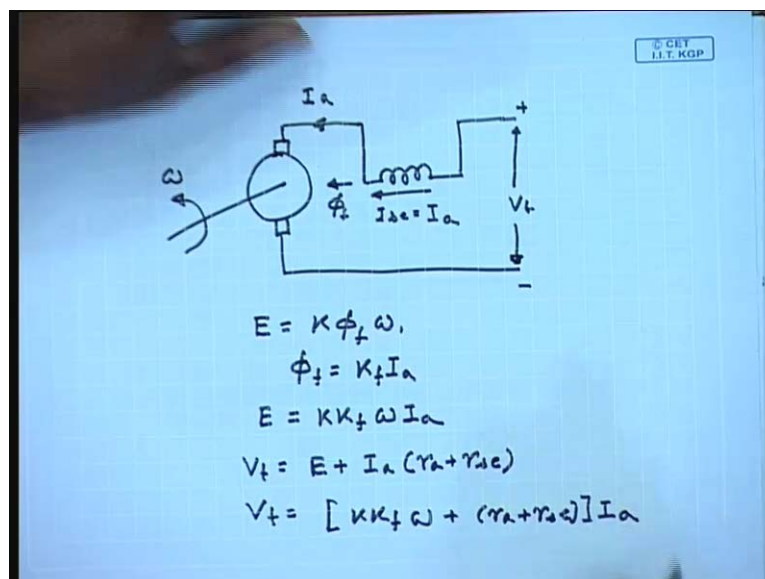 © CET
I.I.T. KGP
Ia
ω
+
ϕf
Ise = Ia
Vt
-
E = Kϕf ω.
ϕf = Kf Ia
E = KKf ω Ia
Vt = E + Ia (ra + rse)
Vt = [KKf ω + (ra + rse)] Ia